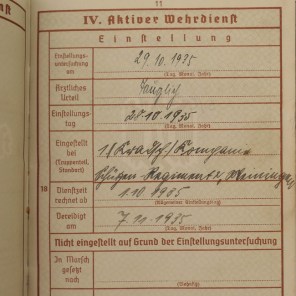 11
IV. Aktiver Wehrdienst
Einstellung
Einstellungs-
untersuchung
am
29.10.1935
(Tag, Monat, Jahr)
Ärztliches
Urteil
Tauglich
Einstellungs-
tag
28.10.1935
(Tag, Monat, Jahr)
Eingestellt
bei
(Truppenteil,
Standort)
1./(Kradsch.) Kompanie
Schützen-Regiment 2, Meiningen
18
Dienstzeit
rechnet ab
1.10.1935
(Allgemeiner Einstellungstag)
Vereidigt
am
7.11.1935
(Tag, Monat, Jahr)
Nicht eingestellt auf Grund der Einstellungsuntersuchung
In Marsch
gesetzt
nach
(Behelfs)